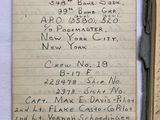 548th Bomb Sqdn.
99th Bomb Grp.
APO 520
% Postmaster,
New York City,
New York
Crew No. 18
B-17 F
229478 Ship No.
Ship No.
Capt. Max E. Davis - Pilot
2nd Lt. Flake Casto - CoPilot
1st Lt. Vernon Schoedinger